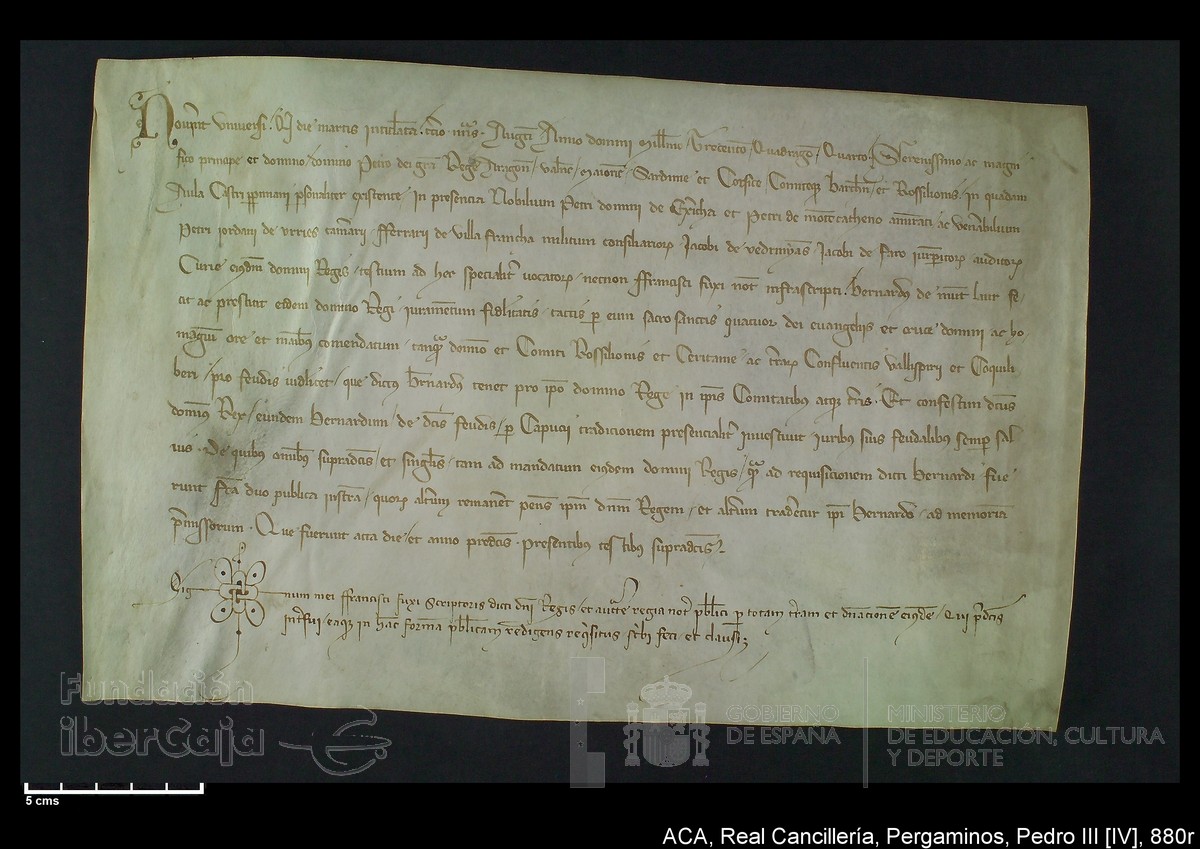 Noverint universi. Qd die martis intitulata. tercio nonas. Augusti Anno domini Millmo. Trecentmo. Quadragmo. Quarto. Serenissimo ac magni
fico principe et domino, domino Petro dei gra Rege Aragon, Valenc, Maioric, Sardinie et Corsice, Comiteq Barchn, et Rossilionis, in quadam
Aula Castri ppiniani psonaliter existente. In presencia Nobilium Petri domini de Exericha et Petri de montecatheno amirati ac venabilium
Petri iordani de urries camarii. fferrarii de villa francha militum consiliarior. Jacobi de Jacobi de Faro iurispitor auditor
Curie eiusdem domini Regis, testium ad hec specialit vocator, necnon ffrancisci fuxi not infrascripti. Bernardus de fe
cit ac prestitit eidem domino Regi, iuramentum fidelitatis, tactis p eum sacrosanctis quatuor dei evangeliis et cruce domini ac ho
magium ore et manibus comendatum, tanq domino et Comiti Rossilionis et Ceritanie ac terrar Confluentis vallispirii et Coquili
beri, pro feudis videlicet, que dictus bernardus tenet pro ipo domino Rege in ipis Comitatibus atq terris. Et confestim dcus
dominus Rex, eundem Bernardum, de dcis feudis, p Capucii tradicionem presencialit investivit iuribus suis feudalibus semp sal
vis. De quibus omnibus supradcis, et singulis, tam ad mandatum eiusdem domini Regis, q ad requisicionem dicti bernardi fue
runt fca duo publica instra, quor altum remanet penes ipm dnm Regem, et altum tradetur ipi Bernardo, ad memoriam
pmissorum. Que fuerunt acta die, et anno predcis. Presentibus testibus supradcis.
Sig num mei ffrancisci fuxi scriptoris dicti dni Regis, et aucte regia notr pblici p totam tram et dnacione eiusde, Qui pdcis
intfui, eaq in hac forma pblicam redigens reqsitus scbi feci et clausi
Fundación
iberCaja
GOBIERNO
DE ESPAÑA
MINISTERIO
DE EDUCACIÓN, CULTURA
Y DEPORTE
5 cms
ACA, Real Cancillería, Pergaminos, Pedro III [IV], 880r